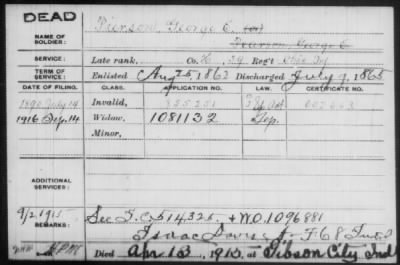 DEAD
NAME OF SOLDIER: Pierson, George E.
Pearson, George E.
SERVICE: Late rank, Co. K, 34 Reg't Ohio Inf
TERM OF SERVICE: Enlisted Aug 25, 1862 Discharged July 9, 1865
DATE OF FILING. CLASS. APPLICATION NO. LAW. CERTIFICATE NO.
1890 July 14 Invalid, 855251
1916 Sep. 14 Widow, 1081132 Gen.
Minor,
ADDITIONAL SERVICES:
9/2 1915 See I.C. 514325. + W.O. 1096881
REMARKS: Isaac F 68 Ind
Died Apr 13, 1915, at Gibson City Ind